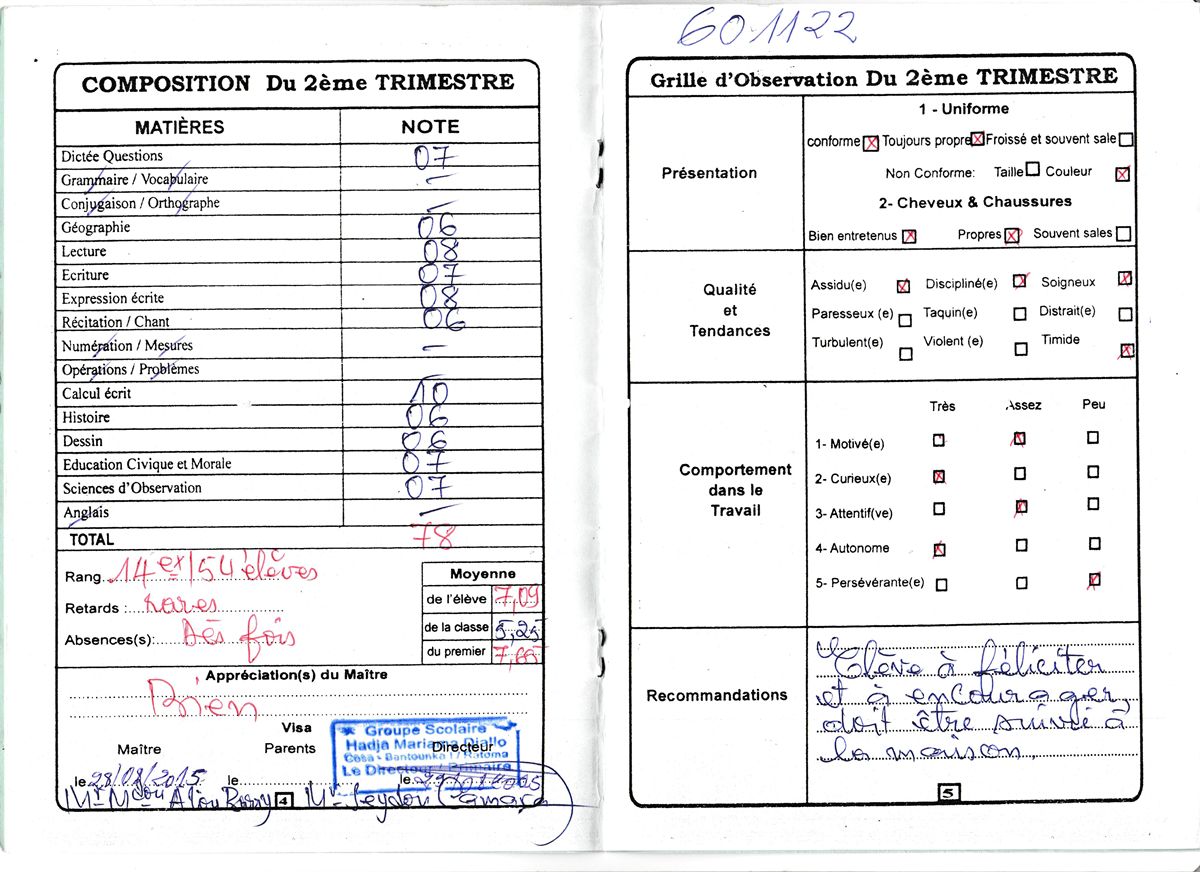 COMPOSITION Du 2ème TRIMESTRE
MATIÈRES NOTE
Dictée Questions 07
Grammaire / Vocabulaire -
Conjugaison / Orthographe -
Géographie 06
Lecture 08
Ecriture 07
Expression écrite 08
Récitation / Chant 06
Numération / Mesures -
Opérations / Problèmes
Calcul écrit 10
Histoire 06
Dessin 06
Education Civique et Morale 07
Sciences d'Observation 07
Anglais -
TOTAL 78
Rang 14ex/54 élèves
Retards : rares
Absences(s): Dès fois
Moyenne
de l'élève 7,09
de la classe 5,25
du premier
Appréciation(s) du Maître
Bien
Visa
Maître Parents Directeur
Groupe Scolaire
Hadja Mariama Diallo
Cosa - Bantounka I / Ratoma
Le Directeur / Primaire
le 28/08/2015 le le
Mr Mcou Aliou Barry 4 Mr Seydou Camara
601122
Grille d'Observation Du 2ème TRIMESTRE
Présentation
1 - Uniforme
conforme Toujours propre Froissé et souvent sale
Non Conforme: Taille Couleur
2- Cheveux & Chaussures
Bien entretenus Propres Souvent sales
Qualité
et
Tendances
Assidu(e) Discipliné(e) Soigneux
Paresseux (e) Taquin(e) Distrait(e)
Turbulent(e) Violent (e) Timide
Comportement
dans le
Travail
Très Assez Peu
1- Motivé(e)
2- Curieux(e)
3- Attentif(ve)
4- Autonome
5- Persévérante(e)
Recommandations
Elève à féliciter
et à encourager,
doit être suivie à
la maison.
5